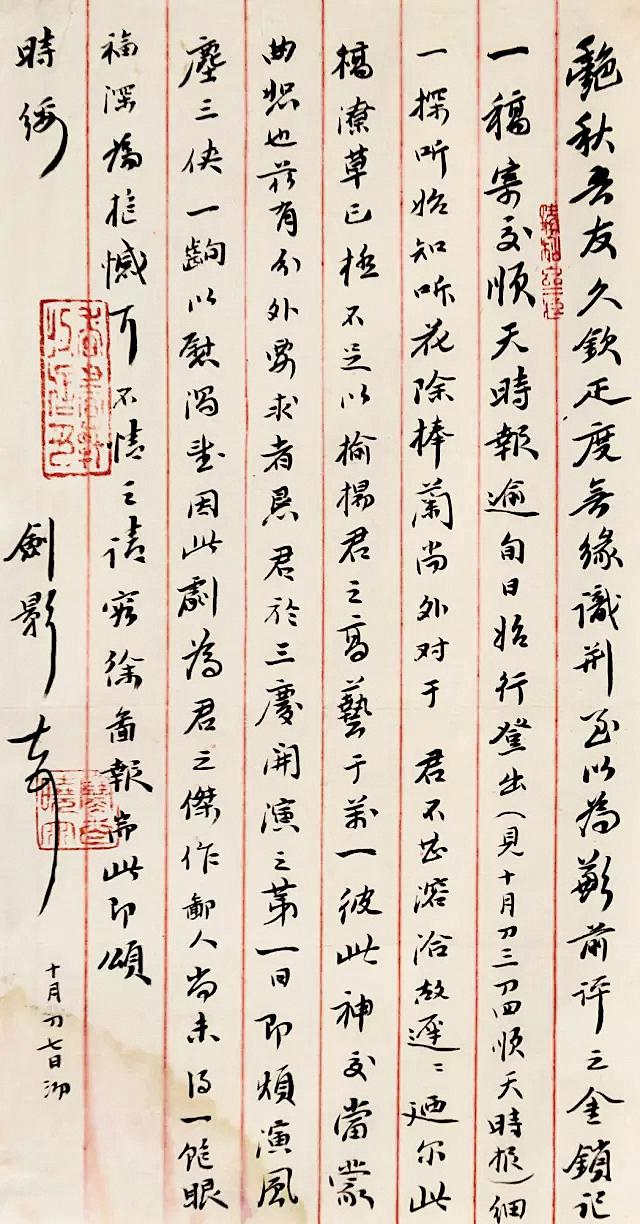 艷秋吾友久欽疋度無緣識荆至以為歉前评之金鎖記
一稿寄交順天時報逾旬日始行登出（見十月刀三刀四順天時报）细
一探听始知听花除捧蘭尚外对于 君不甚溶洽故遲〻廼尔此
稿潦草已極不足以揄揚君之高藝于萬一彼此神交當蒙
曲恕也茲有分外要求者俟君於三慶開演之第一日即煩演風
塵三俠一齣以慰渴望因此劇為君之傑作鄙人尚未得一飽眼
福深為抱憾耳不情之請容徐圖報耑此即頌
時绥
劍影
十月刀七日泐